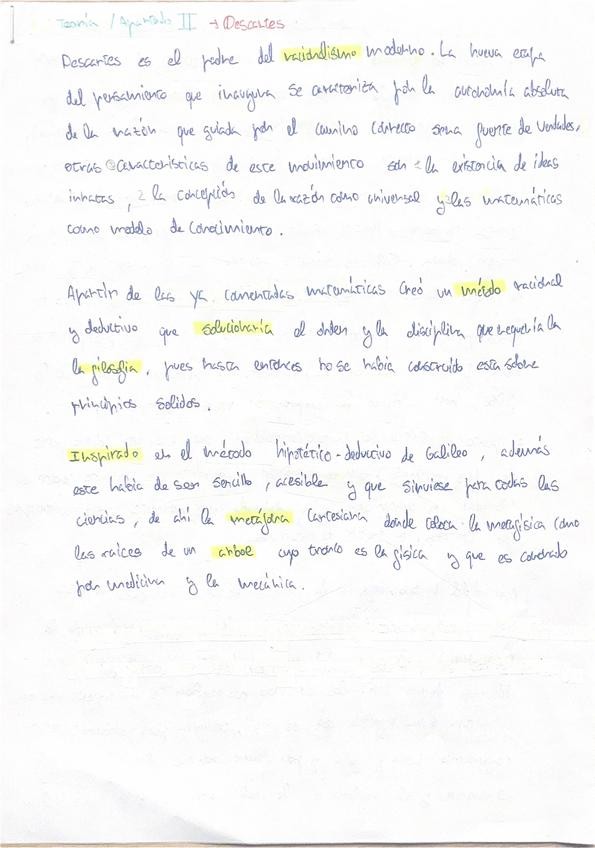 Teoría / Apartado II → Descartes
Descartes es el padre del racionalismo moderno. La nueva etapa
del pensamiento que inaugura se caracteriza por la autonomía absoluta
de la razón que guiada por el camino correcto sera fuente de verdades,
otras características de este movimiento son la existencia de ideas
innatas, 2 la concepción de la razón como universal y las matemáticas
como modelo de conocimiento.
Apartir de las ya comentadas matemáticas creó un método racional
y deductivo que solucionaría el orden y la disciplina que requería la
la filosofia, pues hasta entonces no se había construido esta sobre
principios solidos.
Inspirado en el método hipotético-deductivo de Galileo, además
este habia de ser sencillo, acesible y que sirviese para todas las
ciencias, de ahí la metáfora cartesiana donde coloca la metafísica como
las raíces de un arbol cuyo tronco es la física y que es coronado
por medicina y la mecánica.